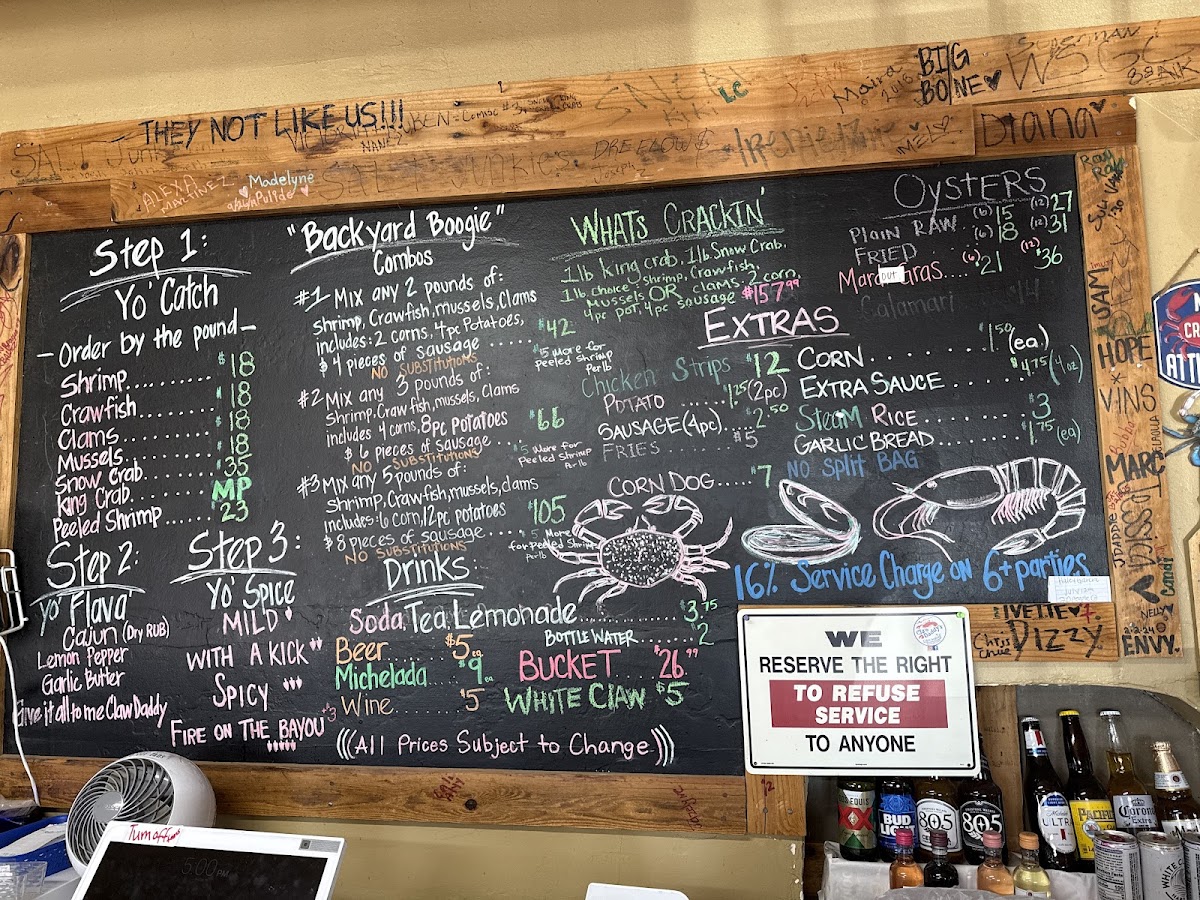 THEY NOT LIKE US!!!
NANEZ
SALT Junkies
LC
Maira
2016
BIG
BONE
SUPERMAN!
WSGC
DRE FLOW$
Joseph
IMELO
Diana
ALEXA
MARTINEZ
Madelyne
Step 1:
Yo' Catch
- Order by the pound -
Shrimp.......... $18
Crawfish........ $18
Clams.......... $18
Mussels........ $18
Snow Crab...... $35
King Crab...... MP
Peeled Shrimp...... 23
Step 2:
Yo' Flava'
Cajun (Dry RUB)
Lemon Pepper
Garlic Butter
Give it all to me Claw Daddy
Step 3:
Yo' Spice
MILD
WITH A KICK
SPICY
FIRE ON THE BAYOU
"Backyard Boogie"
Combos
#1 Mix any 2 pounds of:
shrimp, Crawfish, mussels, Clams
includes: 2 corns, 4pc Potatoes,
$ 4 pieces of sausage ...... $42
NO SUBSTITUTIONS
$5 More for
peeled Shrimp
Per lb
#2 Mix any 3 pounds of:
Shrimp, Crawfish, mussels, Clams
includes 4 corns, 8pc potatoes
$ 6 pieces of sausage... $66
NO SUBSTITUTIONS
$5 More for
peeled Shrimp
Per lb
#3 Mix any 5 pounds of:
Shrimp, Crawfish, mussels, clams
includes: 6 corn, 12pc potatoes
$ 8 pieces of sausage.... $105
NO SUBSTITUTIONS
$5 More
for peeled Shrimp
Per lb
WHATS CRACKIN'
1 lb king crab, 1 lb Snow Crab,
1 lb choice, shrimp, Crawfish,
Mussels OR clams. 2 corn,
4pc pot, 4pc sausage $157.99
OYSTERS
PLAIN RAW (6) 15 (12) 27
FRIED (6) 18 (12) 31
Mardi Gras.... (6) $21 (12) $36
out
Calamari $14
EXTRAS
Chicken Strips $12
POTATO ..... $1.25 (2pc)
SAUSAGE (4pc).... $2.50
FRIES........ $5
CORN DOG..... $7
CORN .......... $1.50 (ea)
EXTRA SAUCE ...... $4.75 (4oz)
STEAM RICE ........ $3
GARLIC BREAD ........ $1.75 (ea)
NO Split BAG
16% Service Charge on 6+ parties
DRINKS:
Soda, Tea, Lemonade............ $3.75
BOTTLE WATER...... $2
Beer........ $5 ea
Michelada... $9 ea
Wine........ $5
BUCKET $26.99
WHITE CLAW $5
((All Prices Subject to Change))
WE
RESERVE THE RIGHT
TO REFUSE
SERVICE
TO ANYONE
SAM
HOPE
VINS
MARC
ROSSY
JOADNE
Candi
IVETTE
DIZZY
NELLY
2-2-24
ENVY.
CRA
ATTIT
Turn off
5:00 PM
DOS EQUIS
BUD
LIGHT
805
805
ULTRA
PACIFICO
Corona
Extra